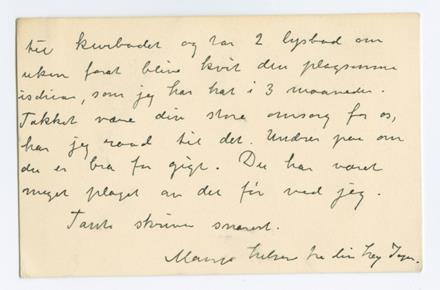 til kurbadet og tar 2 lysbad om
uken forat blive kvit den plagsomme
ischias, som jeg har hat i 3 maaneder.
Takket være din store omsorg for os,
har jeg raad til det. Undres paa om
du er bra for gigt. Du har været
meget plaget av det før ved jeg.
Tante skriver snarest.
Mange hilsen fra din